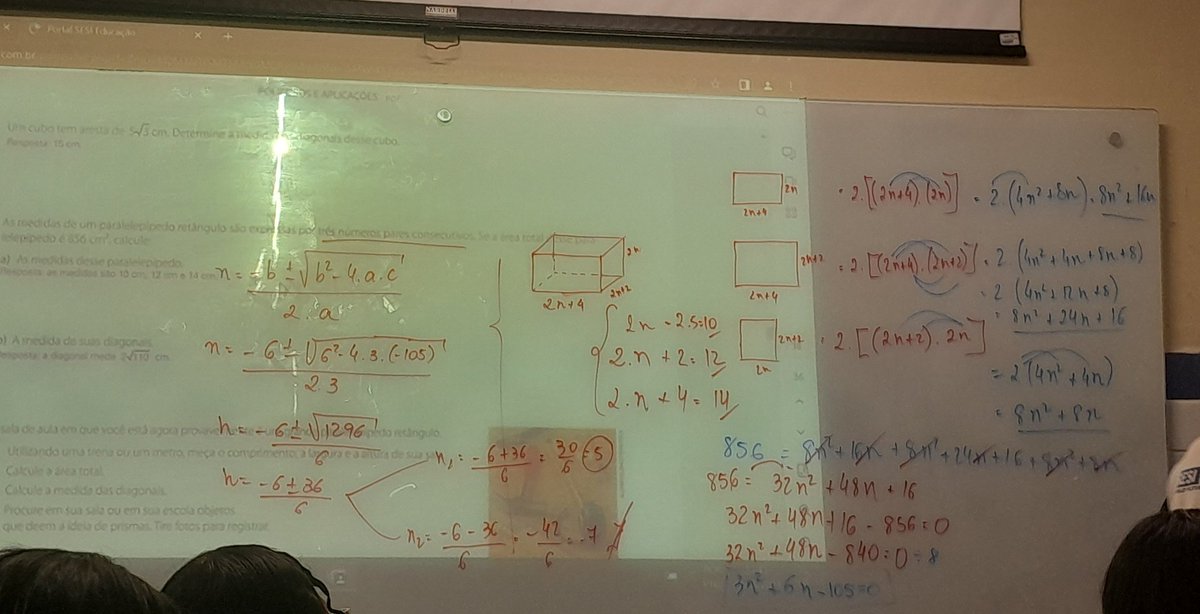 Portal SESI Educação
com.br
E APLICAÇÕES
Um cubo tem aresta de 5√3 cm. Determine a medida diagonais desse cubo.
Resposta: 15 cm.
As medidas de um paralelepípedo retângulo são expressas por três números pares consecutivos. Se a área total
é 856 cm², calcule
a) As medidas desse paralelepípedo.
Resposta: as medidas são 10 cm, 12 cm e 14 cm
b) A medida de suas diagonais.
Resposta: a diagonal mede 2√110 cm.
sala de aula em que você está agora retângulo.
Utilizando uma trena ou um metro, meça o comprimento, a largura e a altura de sua
Calcule a área total.
Calcule a medida das diagonais.
Procure em sua sala ou em sua escola objetos
que deem a ideia de prismas. Tire fotos para registrar.
n = -b ± √(b² - 4.a.c) / 2.a
n = -6 ± √(6² - 4.3.(-105)) / 2.3
n = -6 ± √1296 / 6
n = -6 ± 36 / 6
n₁ = -6+36 / 6 = 30 / 6 = 5
n₂ = -6-36 / 6 = -42 / 6 = -7
2n
2n+2
2n+4
2n = 2.5=10
2.n + 2 = 12
2.n + 4 = 14
2n
2n+4
= 2.[(2n+4).(2n)] = 2.(4n²+8n) = 8n²+16n
2n+2
2n+4
= 2.[(2n+4).(2n+2)] = 2.(4n²+4n+8n+8)
= 2 (4n²+12n+8)
= 8n²+24n+16
2n+2
2n
= 2.[(2n+2).2n]
= 2(4n²+4n)
= 8n²+8n
856 = 8n²+16n+8n²+24n+16+8n²+8n
856 = 32n²+48n+16
32n²+48n+16-856=0
32n²+48n-840=0 ÷8
3n²+6n-105=0